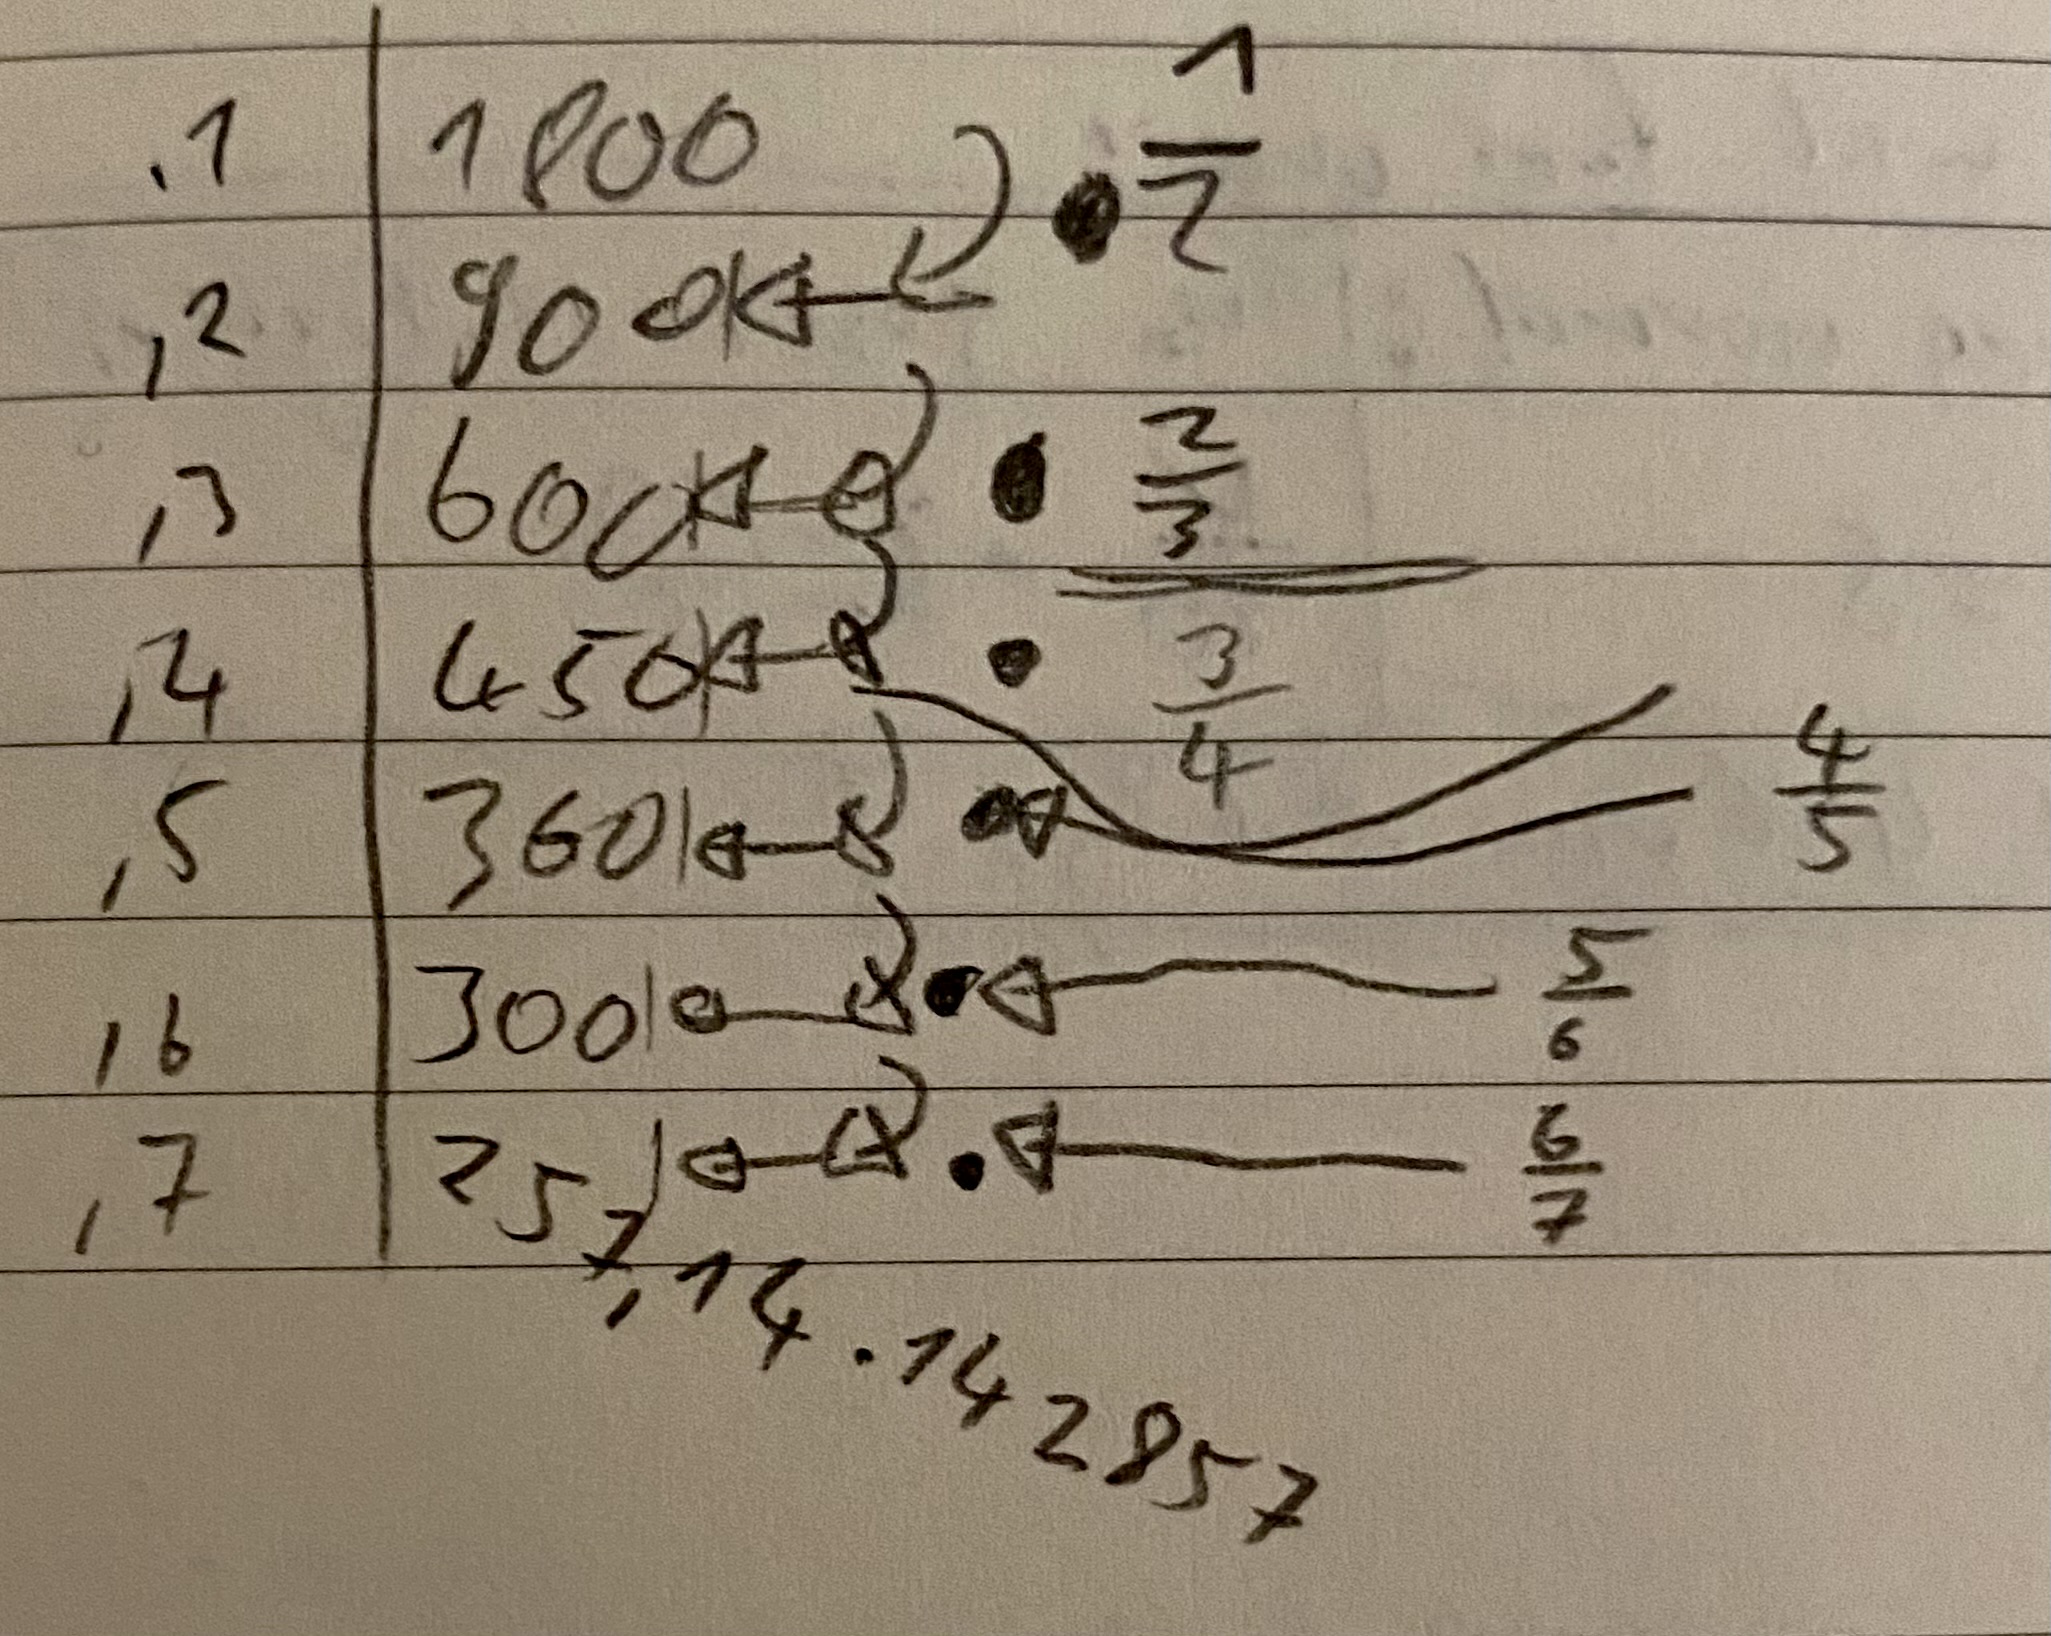 .1 1800 • 1/2
,2 900
,3 600 • 2/3
,4 450 • 3/4
,5 360 • 4/5
,6 300 • 5/6
,7 257,14.142857 • 6/7